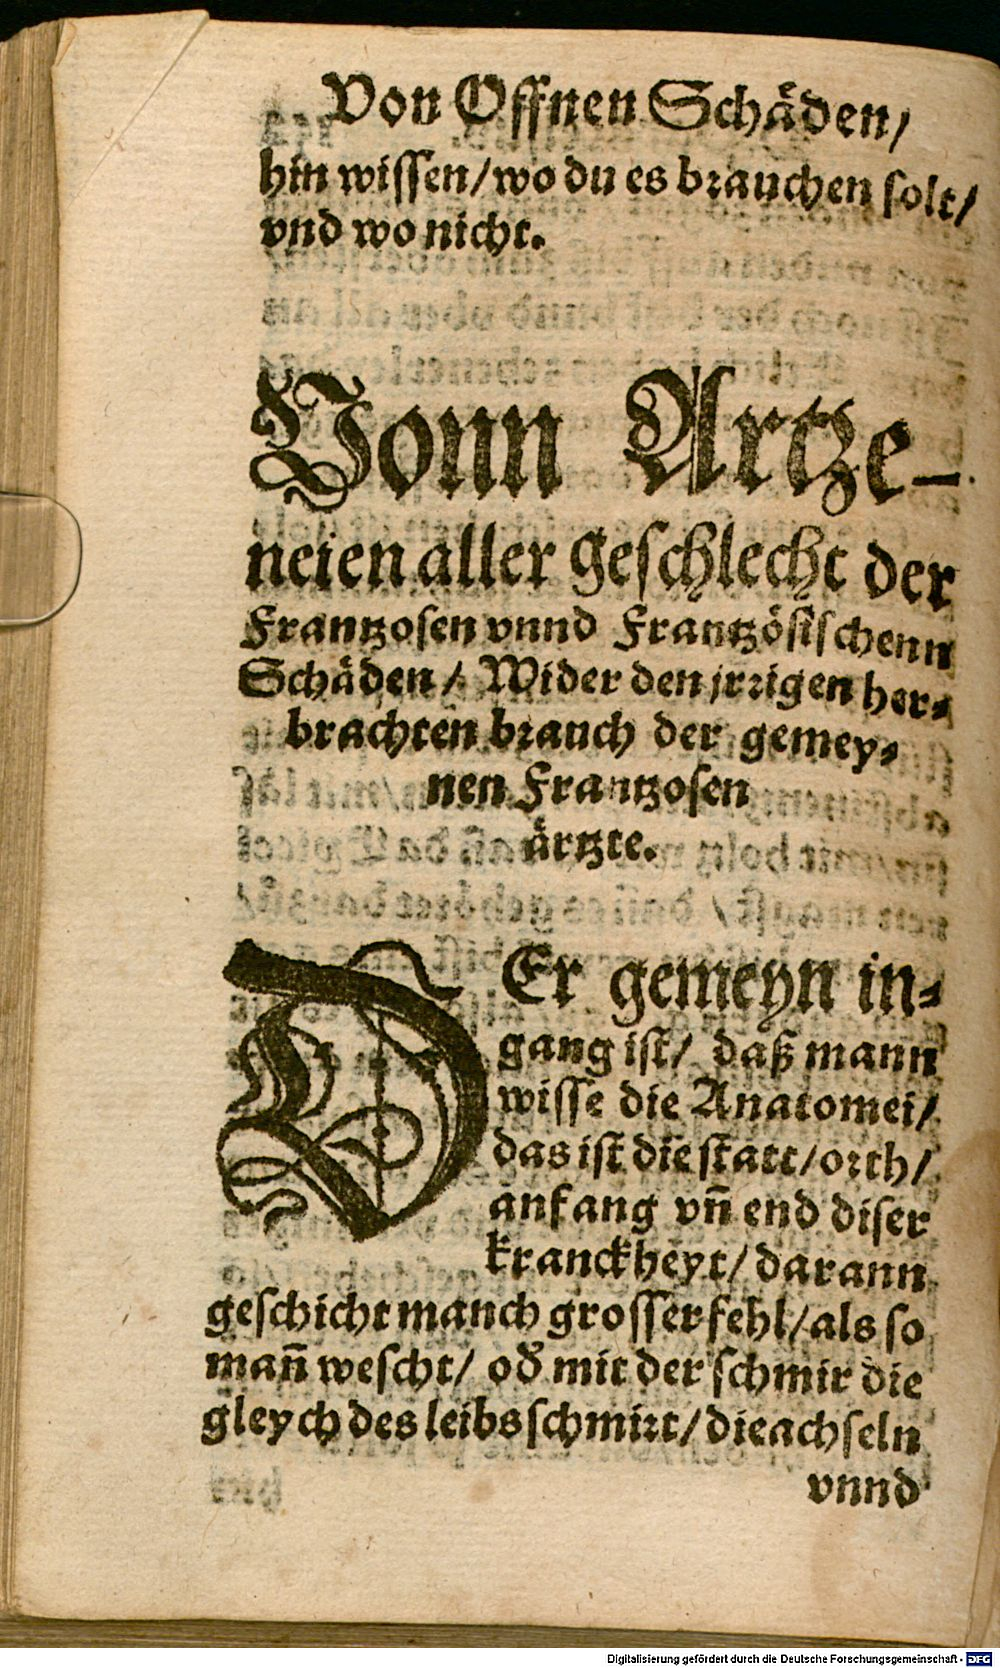 Von Offnen Schäden/
hin wissen/wo du es brauchen solt/
vnd wo nicht.
Vonn Artze-
neien aller geschlecht der
Frantzosen vnnd Frantzösischenn
Schäden/ Wider den jrrigen her-
brachten brauch der gemey-
nen Frantzosen
ärtzte.
DEr gemeyn in-
gang ist/ daß mann
wisse die Anatomei/
das ist die statt/orth/
anfang vñ end diser
kranckheyt/ darann
geschicht manch grosser fehl/als so
mañ wescht/ oď mit der schmir die
gleych des leibs schmirt/die achseln
vnnd
Digitalisierung gefördert durch die Deutsche Forschungsgemeinschaft - DFG